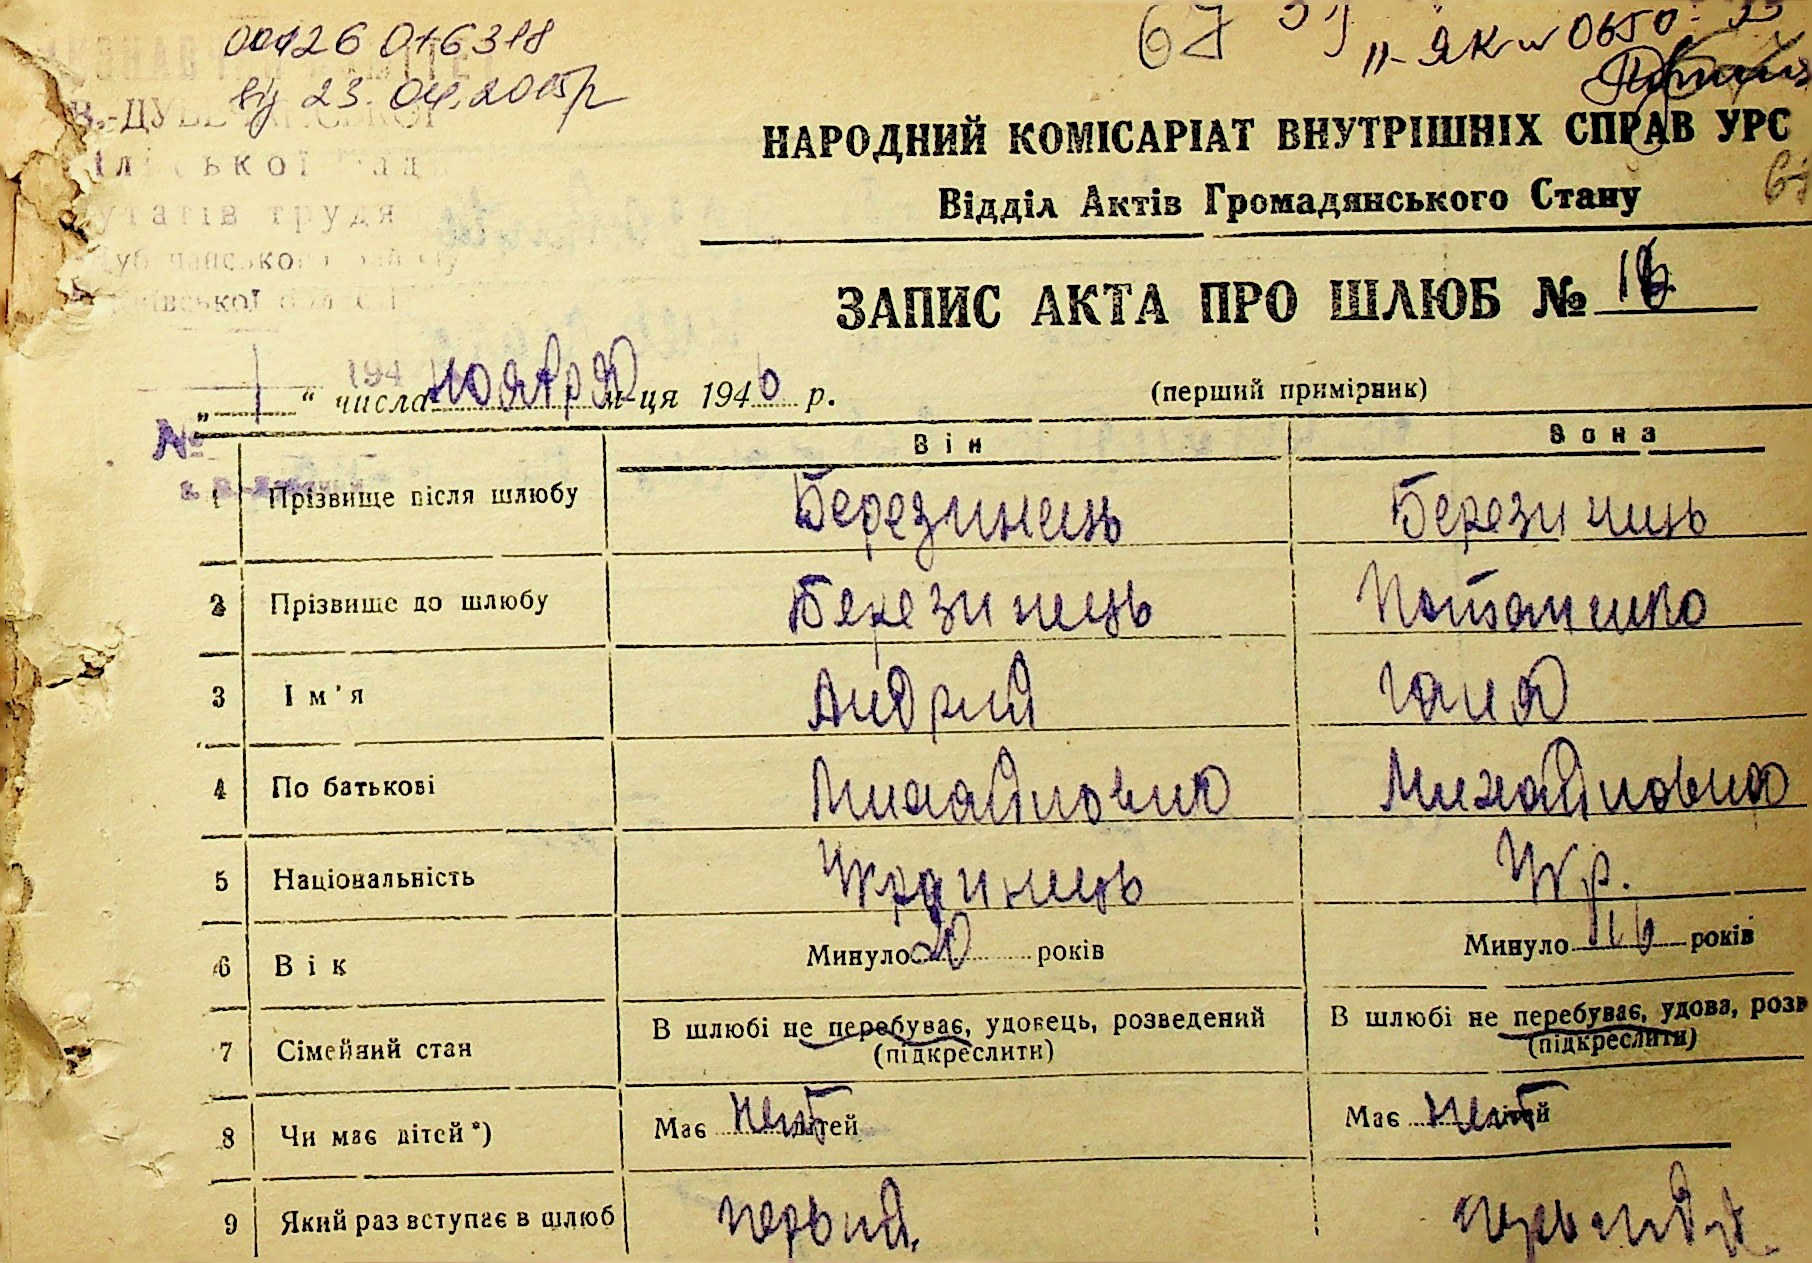 00126 016318
від 23.04.2015р
67
НАРОДНИЙ КОМІСАРІАТ ВНУТРІШНІХ СПРАВ УРС
Відділ Актів Громадянського Стану
ЗАПИС АКТА ПРО ШЛЮБ № 16
„ 1 “ числа ноября м-ця 1946 р. (перший примірник)
№
Він Вона
1 Прізвище після шлюбу Березинець Березинець
2 Прізвище до шлюбу Березинець Потапенко
3 Ім'я Андрий Ганя
4 По батькові Михайлович Михайловна
5 Національність Украинець Укр.
6 Вік Минуло 20 років Минуло років
7 Сімейний стан В шлюбі не перебуває, удовець, розведений (підкреслити) В шлюбі не перебуває, удова, розв (підкреслити)
8 Чи має дітей*) Має нет дітей Має нет дітей
9 Який раз вступає в шлюб первый